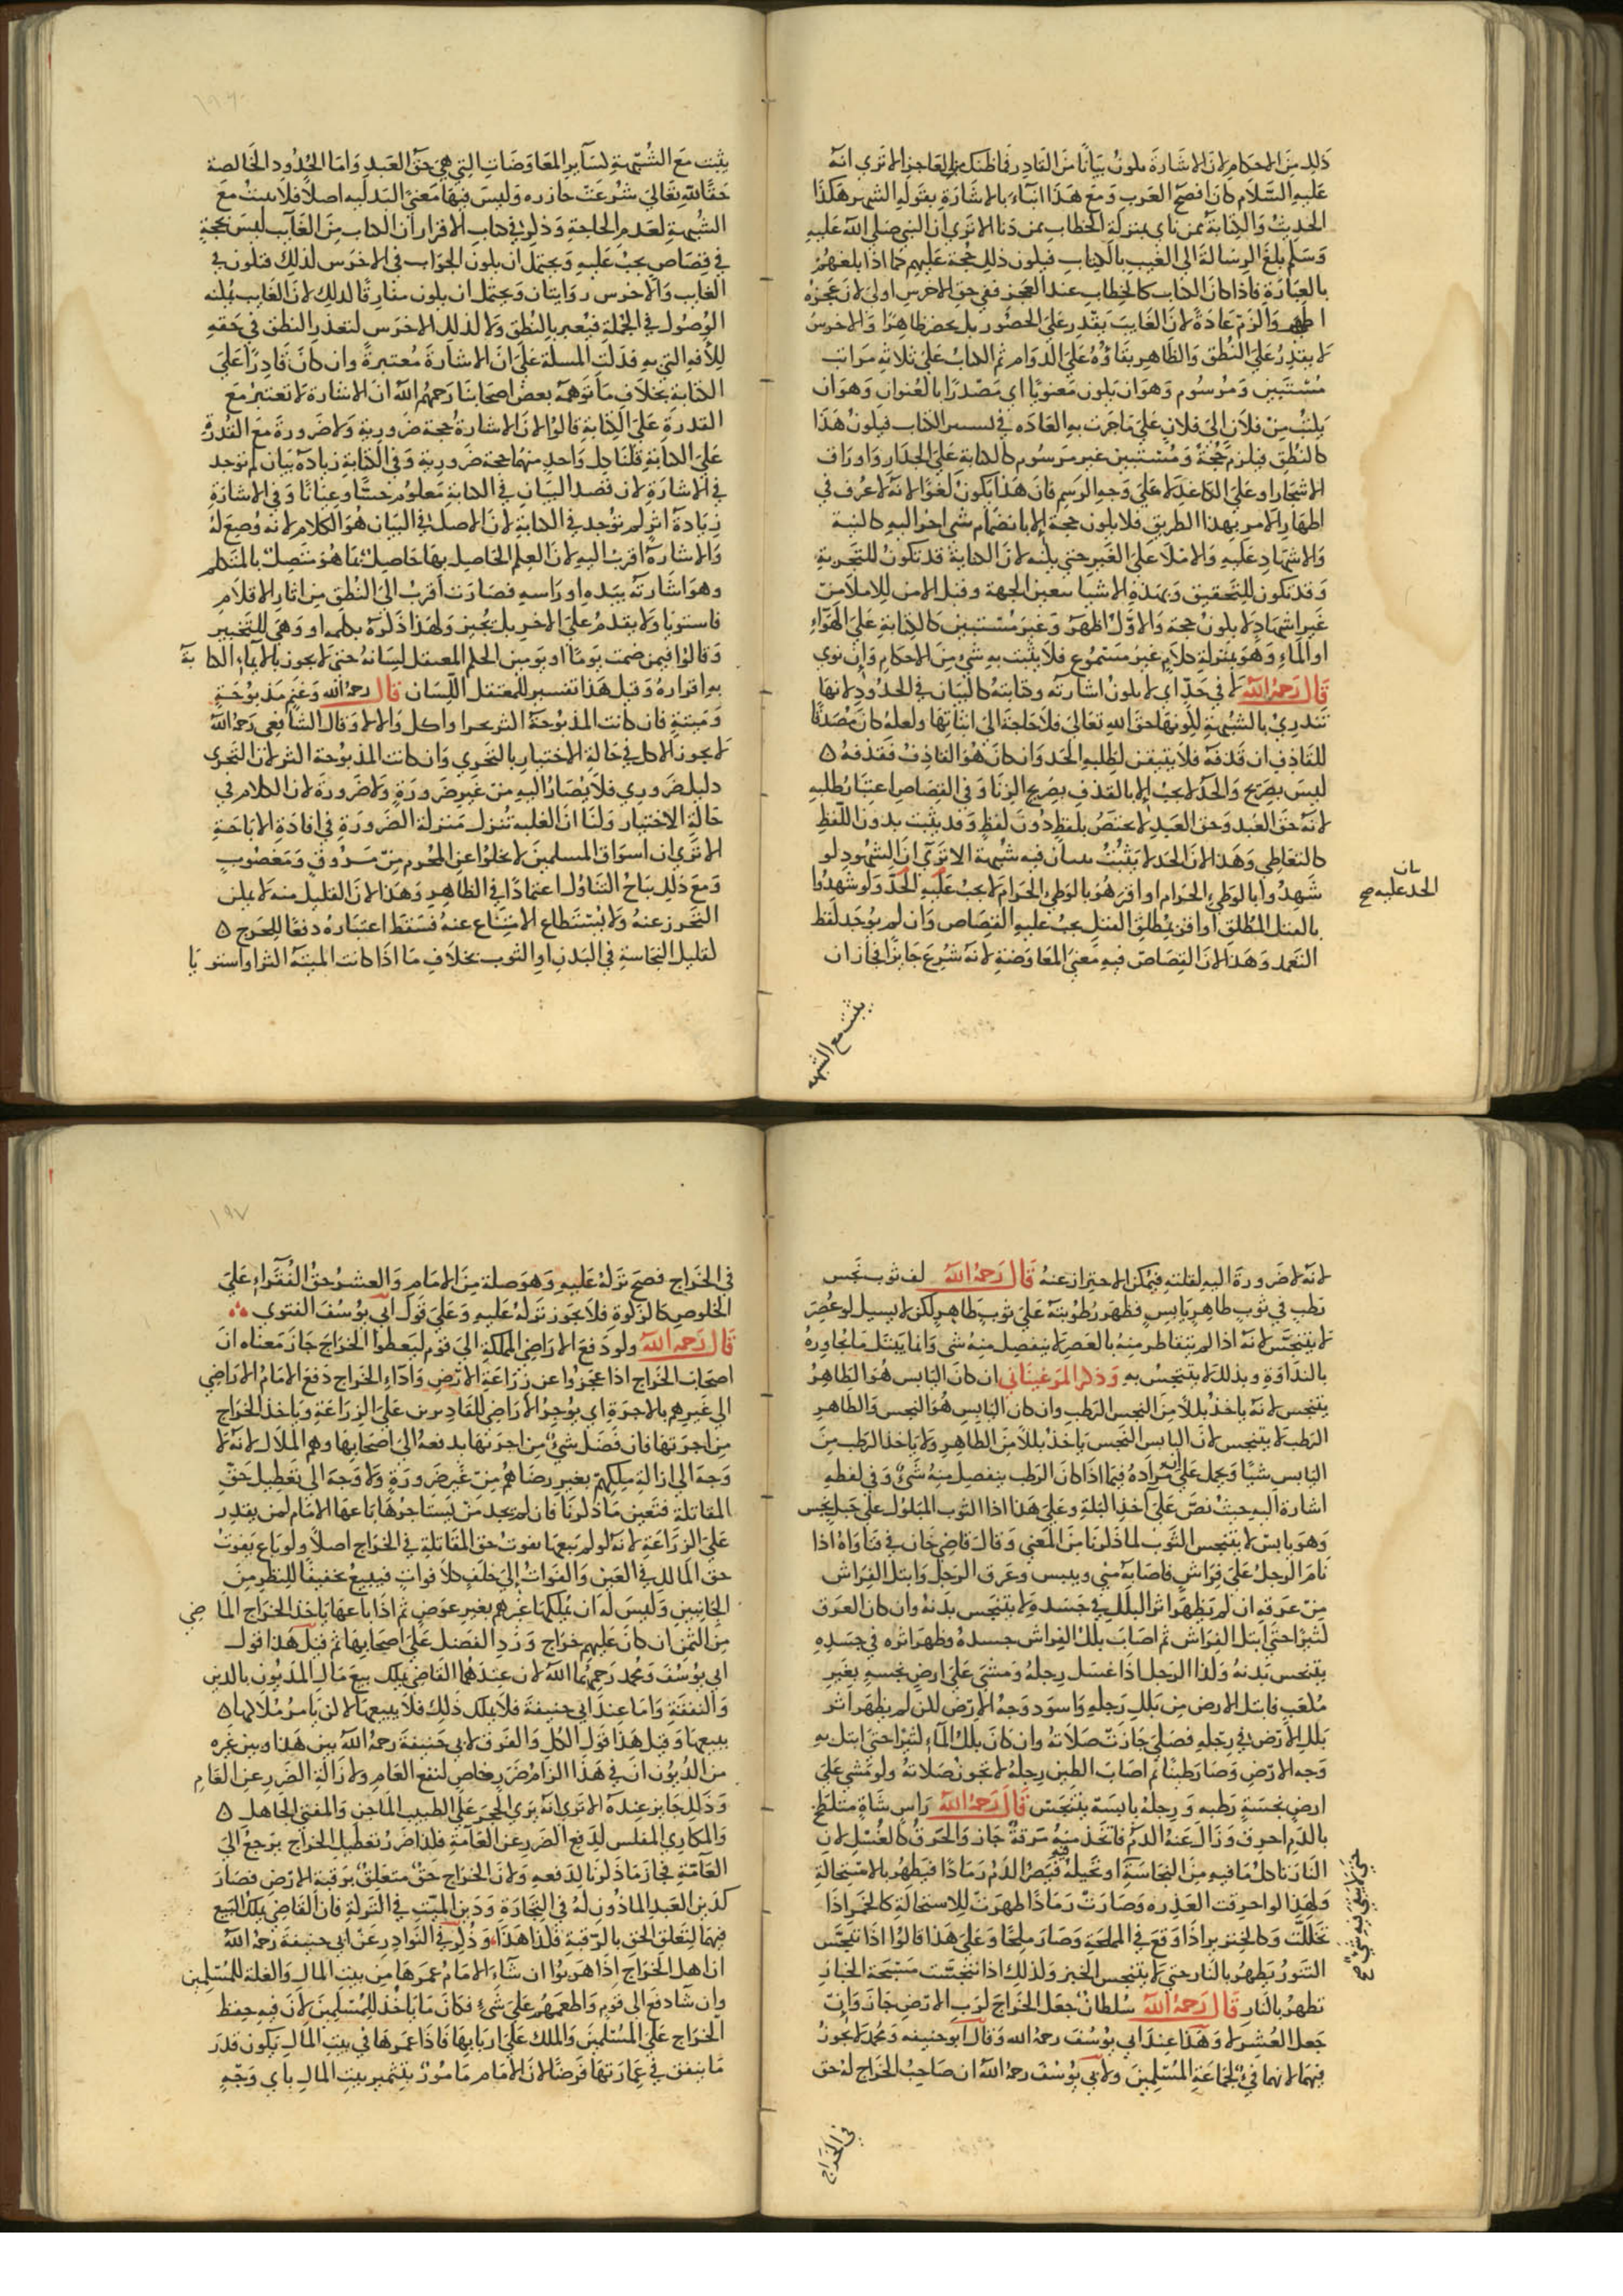 ذلك من الاحكام لان الاشارة تكون بيانا من القادر فما ظنك بالعاجز الا ترى انه
عليه السلام كان افصح العرب ومع هذا اتاء بالاشارة بقوله الشهر هكذا
الحديث والكتابة ممن ناى بمنزلة الخطاب ممن دنا الا ترى ان النبي صلى الله عليه
وسلم بلغ الرسالة الى الغيب بالكتاب فيكون ذلك حجة عليهم كما اذا بلغهم
بالعبارة فاذا كان الكتاب كالخطاب عند العجز ففي حق الاخرس اولى لان عجزه
اظهر والزم عادة لان الغايب يقدر على الحضور بل يحضر ظاهرا والاخرس
لا يقدر على النطق والظاهر بقاؤه على الدوام ثم الكتاب على ثلاثه مراتب
مستبين ومرسوم وهو ان يكون معنونا اي مصدرا بالعنوان وهو ان
يكتب من فلان الى فلان على ما جرت به العاده في الكتاب فيكون هذا
كالنطق فيلزم حجة ومستبين غير مرسوم كالكتابة على الجدار واوراق
الاشجار او على الكاغد لا على وجه الرسم فان هذا يكون لغوا لانه لا عرف في
اظهار الامر بهذا الطريق فلا يكون حجة الا بانضمام شي اخر اليه كالنية
والاشهاد عليه والاملا على الغير حتى يكتبه لان الكتابة قد تكون للتجربة
وقد تكون للتحقيق وبهذه الاشيا تتعين الجهة وقيل الاملا من
غير اشهاد لا يكون حجة والاول اظهر وغير مستبين كالكتابة على الهواء
او الماء وهو بمنزلة كلام غير مسموع فلا يثبت به شي من الاحكام وان نوى
قال رحمه الله لا في حد اي لا يكون اشارته وكتابته كالبيان في الحدود لانها
تندرئ بالشبهة لكونها حق الله تعالى فلا حاجة الى اثباتها ولعله كان مصدقا
للقاذف ان قذفه فلا يتيقن لطلبه الحد وان كان هو القاذف فقذفه
ليس بصريح والحد لا يجب الا بالقذف بصريح الزنا وفي القصاص اعتبار طلبه
لانه حق العبد وحق العبد لا يختص بلفظ دون لفظ وقد يثبت بدون اللفظ
كالتعاطي وهذا لان الحد لا يثبت ببيان فيه شبهة الا ترى ان الشهود لو
شهدوا بالوطي الحرام او اقر هو بالوطي الحرام لا يجب عليه الحد ولو شهدوا
بالقتل المطلق او اقر بمطلق القتل يجب عليه القصاص وان لم يوجد لفظ
التعمد وهذا لان القصاص فيه معنى المعاوضة لانه شرع جابرا فجاز ان
الحد عليه صح
يثبت مع الشبهه
يثبت مع الشبهة لساير المعاوضات التي هي حق العبد واما الحدود الخالصة
حقا لله تعالى شرعت زاجره وليس فيها معنى البدليه اصلا فلا يثبت مع
الشبهة لعدم الحاجة وذكر في كتاب الاقرار ان الكتاب من الغايب ليس بحجة
في قصاص يجب عليه ويحتمل ان يكون الجواب في الاخرس لذلك فتكون في
الغايب والاخرس روايتان ويحتمل ان يكون مفارقا لذلك لان الغايب يمكنه
الوصول في الجملة فيعبر بالنطق ولا كذلك الاخرس لتعذر النطق في حقه
للآفه التي به فدلت المسلة على ان الاشارة معتبرة وان كان قادرا على
الكتابة بخلاف ما توهمه بعض اصحابنا رحمهم الله ان الاشارة لا تعتبر مع
القدرة على الكتابة قالوا لان الاشارة حجة ضرورية ولا ضرورة مع القدرة
على الكتابة قلنا كل واحد منهما حجة ضرورية وفي الكتابة زيادة بيان لم توجد
في الاشارة لان قصد البيان في الكتابة معلوم حسا وعيانا وفي الاشارة
زيادة اثر لم توجد في الكتابة لان الاصل في البيان هو الكلام لانه وضع له
والاشارة اقرب اليه لان العلم الحاصل بها حاصل بما هو متصل بالمتكلم
وهو اشارته بيده او راسه فصارت اقرب الى النطق من اثار الاقلام
فاستويا ولا يقدم على الاخر بل يخير ولهذا ذكره بكلمه او وهي للتخيير
وقالوا فيمن صمت يوما او يومين الحكم المعتقل لسانه حتى لا يجوز بالايماء الكتابة
به اقراره وقيل هذا تفسير للمعتقل اللسان قال رحمه الله وغنم مذبوحة
وميتة فان كانت المذبوحة اكثر تحرا واكل والا لا وقال الشافعي رحمه الله
لا يجوز الاكل في حالة الاختيار بالتحري وان كانت المذبوحة اكثر لان التحرى
دليل ضروري فلا يصار اليه من غير ضرورة ولا ضرورة لان الكلام في
حالة الاختيار ولنا ان الغلبه تنزل منزلة الضرورة في افادة الاباحة
الا ترى ان اسواق المسلمين لا يخلوا عن المحرم من مسروق ومغصوب
ومع ذلك يباح التناول اعتمادا في الظاهر وهذا لان القليل منه لا يمكن
التحرز عنه ولا يستطاع الامتناع عنه فسقط اعتباره دفعا للحرج
لقليل النجاسة في البدن او الثوب بخلاف ما اذا كانت الميتة اكثر او استويا
لانه لا ضرورة اليه لقلته فيمكن الاحتراز عنه قال رحمه الله لف ثوب نجس
رطب في ثوب طاهر يابس فظهر رطوبته على ثوب طاهر لكن لا يسيل لو عصر
لا يتنجس لانه اذا لم يتقاطر منه بالعصر لا ينفصل منه شي وانما يبتل ما يجاوره
بالنداوة وبذلك لا يتنجس به وذكر المرغيناني ان كان اليابس هو الطاهر
يتنجس لانه ياخذ بللا من النجس الرطب وان كان اليابس هو النجس والطاهر
الرطب لا يتنجس لان اليابس النجس ياخذ بللا من الطاهر ولا ياخذ الرطب من
اليابس شيا ويحمل على ان مراده فيما اذا كان الرطب ينفصل منه شي وفي لفظه
اشارة اليه حيث نص على اخذ البلة وعلى هذا اذا الثوب المبلول على حبل نجس
وهو يابس لا يتنجس الثوب لما ذكرنا من المعنى وقال قاضي خان في فتاواه اذا
نام الرجل على فراش فاصابه مني ويبس وعرق الرجل وابتل الفراش
من عرقه ان لم يظهر اثر البلل في جسده لا يتنجس بدنه وان كان العرق
كثيرا حتى ابتل الفراش ثم اصاب بلل الفراش جسده وظهر اثره في جسده
يتنجس بدنه وكذا الرجل اذا غسل رجله ومشى على ارض نجسه بغير
مكعب فابتل الارض من بلل رجله واسود وجه الارض لكن لم يظهر اثر
بلل الارض في رجله فصلى جازت صلاته وان كان بلل الماء كثيرا حتى ابتل به
وجه الارض وصار طينا ثم اصاب الطين رجله لا تجوز صلاته ولو مشى على
ارض نجسة رطبه ورجله يابسة يتنجس قال رحمه الله راس شاة متلطخ
بالدم احرق وزال عنه الدم فاتخذ منه مرقة جاز والحرق كالغسل لان
النار تاكل ما فيه من النجاسة او تحيله فيصير الدم رمادا فيطهر بالاستحالة
ولهذا لو احرقت العذره وصارت رمادا طهرت للاستحالة كالخمر اذا
تخللت وكالخنزير اذا وقع في المملحة وصار ملحا وعلى هذا قالوا اذا تنجس
التنور يطهر بالنار حتى لا يتنجس الخبز وكذلك اذا تنجست مسحة الخباز
تطهر بالنار قال رحمه الله سلطان جعل الخراج لرب الارض جاز وان
جعل العشر لا وهذا عند ابي يوسف رحمه الله وقال ابو حنيفه ومحمد لا يجوز
فيهما لانهما فيء لجماعة المسلمين ولابي يوسف رحمه الله ان صاحب الخراج له حق
حتى لا يبقى فيه شي صح
في الخراج
١٩٧
في الخراج فصح تركه عليه وهو صلة من الامام والعشر حق الفقراء على
الخلوص كالزكوة فلا يجوز تركه عليه وعلى قول ابي يوسف الفتوى
قال رحمه الله ولو دفع الاراضي المملكة الى قوم ليعطوا الخراج جاز معناه ان
اصحاب الخراج اذا عجزوا عن زراعة الارض واداء الخراج دفع الامام الاراضي
الى غيرهم بالاجرة اي يوجر الاراضي للقادرين على الزراعة وياخذ الخراج
من اجرتها فان فضل شي من اجرتها يدفعه الى اصحابها وهم الملاك لانه لا
وجه الى ازالة ملكهم بغير رضاهم من غير ضرورة ولا وجه الى تعطيل حق
المقاتلة فتعين ما ذكرنا فان لم يجد من يستاجرها باعها الامام لمن يقدر
على الزراعة لانه لو لم يبعها يفوت حق المقاتلة في الخراج اصلا ولو باع يفوت
حق المالك في العين والفوات الى خلف كلا فوات فيبيع تحقيقا للنظر من
الجانبين وليس له ان يملكها غيرهم بغير عوض ثم اذا باعها ياخذ الخراج الماضي
من الثمن ان كان عليهم خراج ورد الفضل على اصحابها ثم قيل هذا قول
ابي يوسف ومحمد رحمهما الله لان عندهما القاضي يملك بيع مال المديون بالدين
والنفقة واما عند ابي حنيفة فلا يملك ذلك فلا يبيعها لكن يامر ملاكها
ببيعها وقيل هذا قول الكل والفرق لابي حنيفة رحمه الله بين هذا وبين غيره
من الديون ان في هذا الزام ضرر خاص لنفع العام ولازالة الضرر عن العام
وذلك جايز عنده الا ترى انه يرى الحجر على الطبيب الماجن والمفتي الجاهل
والمكاري المفلس لدفع الضرر عن العامة فكذا ضرر تعطيل الخراج يرجع الى
العامة فجاز ما ذكرنا لدفعه ولان الخراج حق متعلق برقبة الارض فصار
كدين العبد الماذون له في التجارة ودين الميت في التركة فان القاضي يملك البيع
فيهما لتعلق الحق بالرقبة فكذا هذا وذكر في النوادر عن ابي حنيفة رحمه الله
ان اهل الخراج اذا هربوا ان شاء الامام عمرها من بيت المال والغلة للمسلمين
وان شا دفع الى قوم واطعمهم على شيء فكان ما ياخذ للمسلمين لان فيه حفظ
الخراج على المسلمين والملك على اربابها فاذا عمرها في بيت المال يكون قدر
ما ينفق في عمارتها قرضا لان الامام مامور بتثمير بيت المال باي وجه